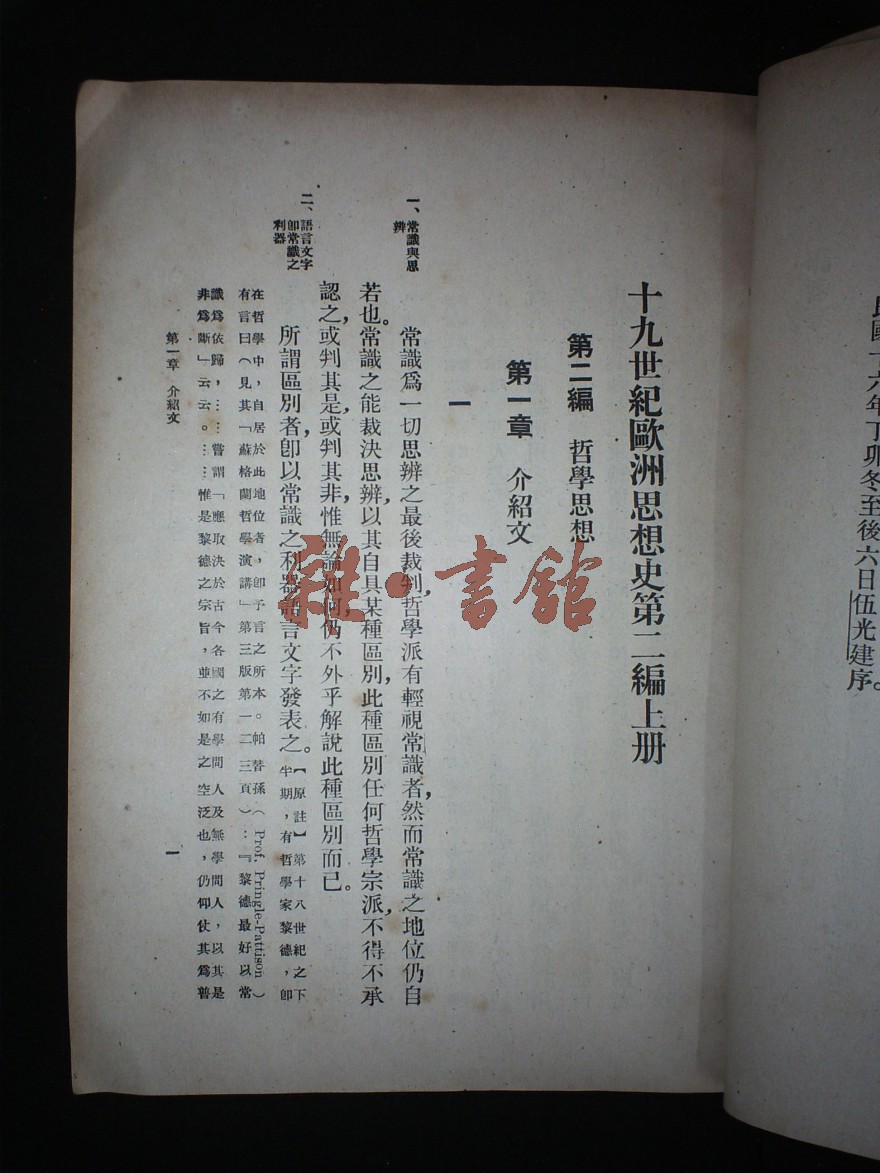 民國十六年丁卯冬至後六日伍光建序。
十九世紀歐洲思想史第二編上册
第二編 哲學思想
第一章 介紹文
一
一、常識與思
辨
常識爲一切思辨之最後裁判，哲學派有輕視常識者，然而常識之地位仍自
若也。常識之能裁決思辨，以其自具某種區別，此種區別任何哲學宗派，不得不承
認之，或判其是，或判其非，惟無論如何，仍不外乎解說此種區別而已。
二、語言文字
卽常識之
利器
所謂區別者，卽以常識之利器語言文字發表之。【原註】第十八世紀之下
半期，有哲學家黎德，卽
在哲學中，自居於此地位者，卽予言之所本。帕替孫（Prof. Pringle-Pattison）
有言曰（見其「蘇格蘭哲學演講」第三版第一二三頁）：『黎德最好以常
識爲依歸，……嘗謂「應取決於古今各國之有學問人及無學問人，以其是
非爲斷」云云。……惟是黎德之宗旨，並不如是之空泛也，仍仰仗其爲普
第一章 介紹文
一
雜·書館